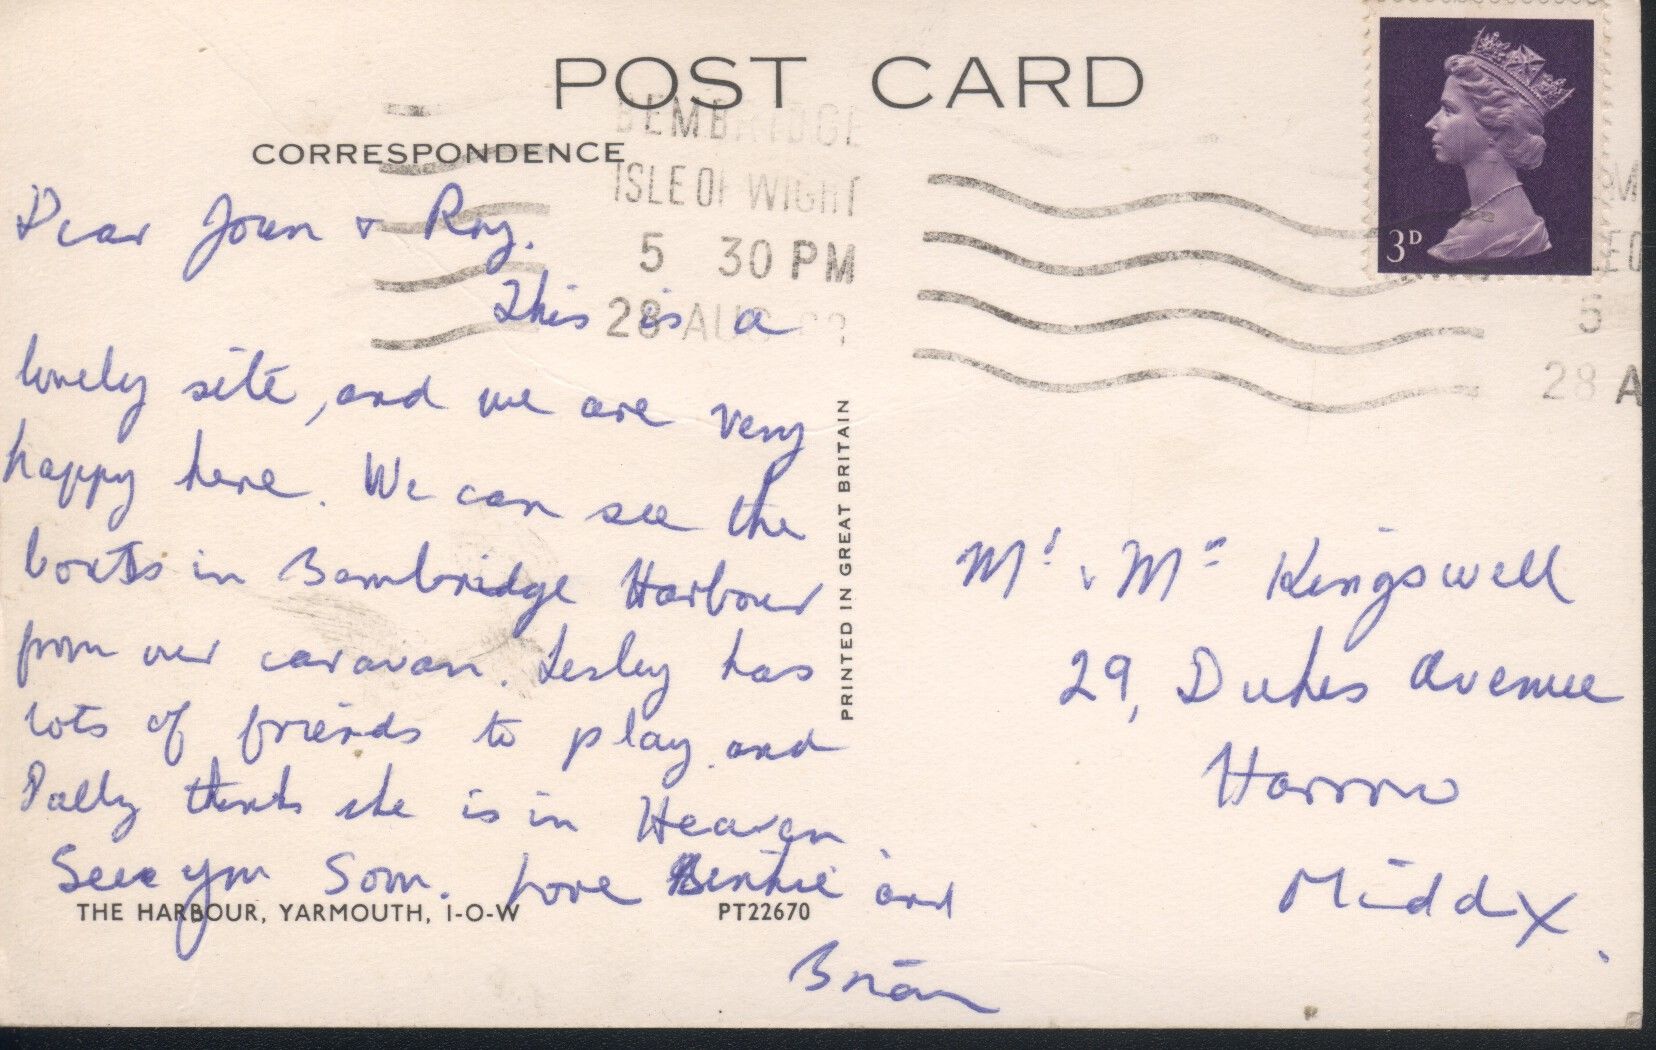 POST CARD
CORRESPONDENCE
BEMBRIDGE
ISLE OF WIGHT
5 30 PM
28 AUG
3D
M
5
28 A
Dear Joan & Roy.
This is a
lovely site, and we are very
happy here. We can see the
boats in Bembridge Harbour
from our caravan. Lesley has
lots of friends to play and
thinks she is in Heaven
See you Soon. Love and
Brian
PRINTED IN GREAT BRITAIN
Mr & Mrs Kingswell
29, Dukes Avenue
Harrow
Middx.
THE HARBOUR, YARMOUTH, I-O-W
PT22670